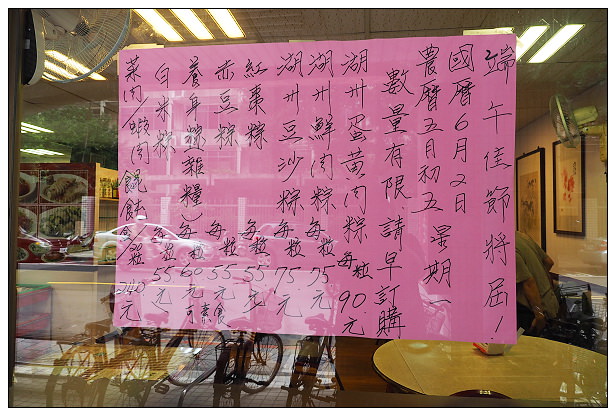 端午佳節將屆!
國曆6月2日
農曆五月初五 星期一
數量有限 請早訂購
湖州蛋黃肉粽 每粒90元
湖州鮮肉粽 每粒75元
湖州豆沙粽 75元
紅棗粽 每粒55元
赤豆粽 每粒55元
養身粽(雜糧) 每粒60元 可素食
白米粽 每粒55元
菜肉/蝦肉餛飩 240元